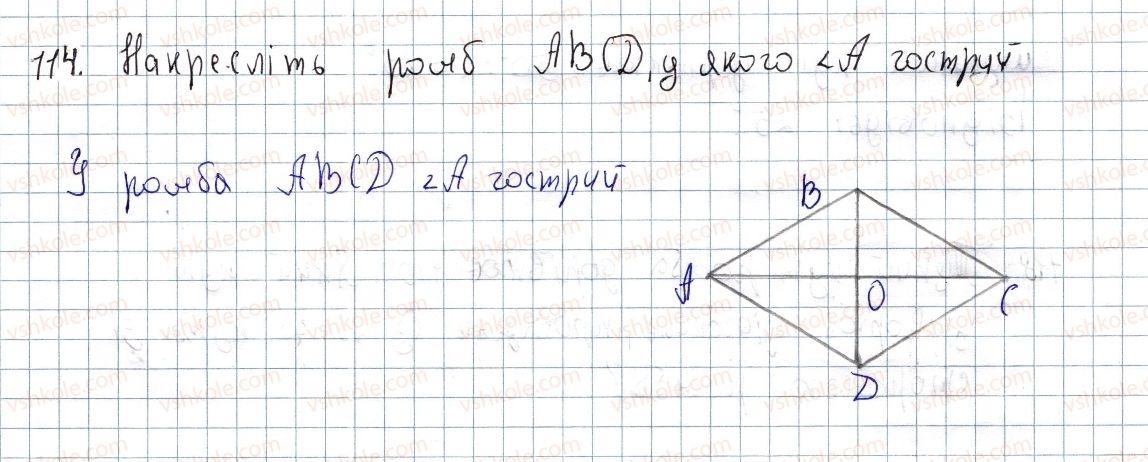 114. Накресліть ромб ABCD, у якого ∠A гострий
У ромба ABCD ∠A гострий
B
A
O
C
D